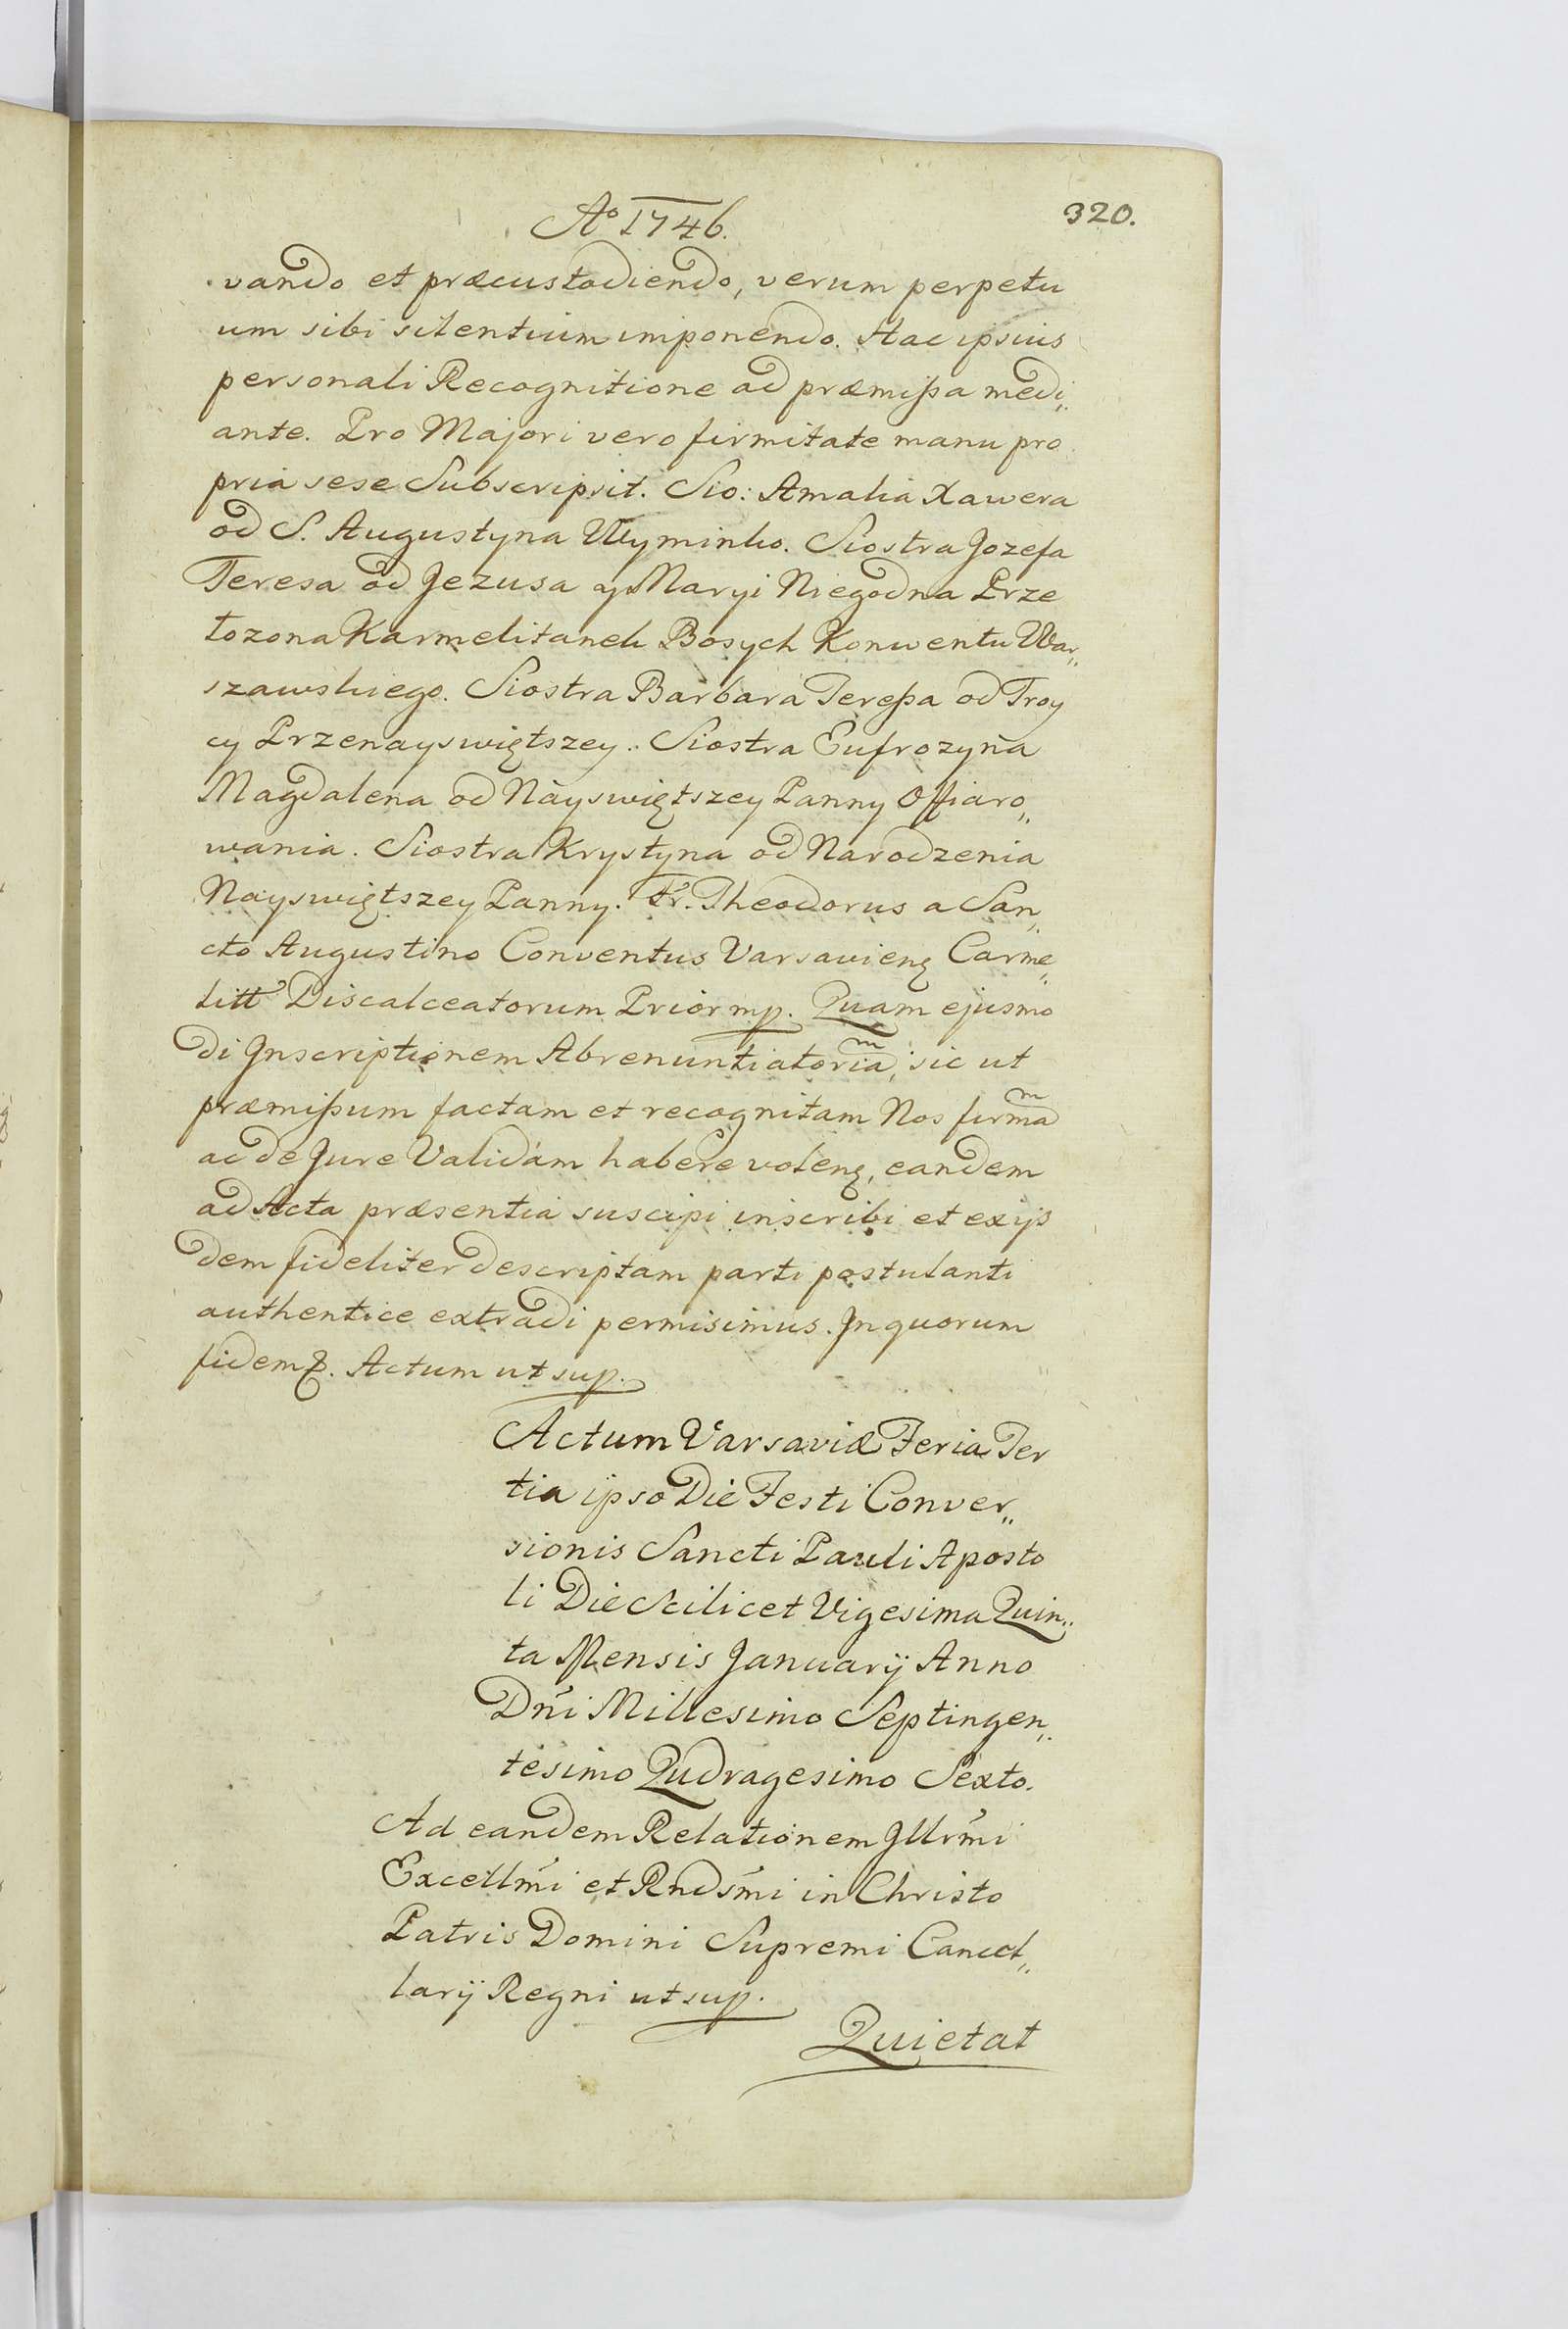 Aº 1746.
320.
vando et præcustodiendo, verum perpetu
um sibi silentium imponendo. Hac ipsius
personali Recognitione ad præmißa medi„
ante. Pro Majori vero firmitate manu pro
pria sese Subscripsit. Sio: Amalia Xawera
od S. Augustyna Wyminko. Siostra Jozefa
Teresa od Jezusa y Maryi Niegodna Prze
łozona Karmelitanek Bosych Konwentu War„
szawskiego. Siostra Barbara Tereßa od Troy
cy Przenayswiętszey. Siostra Eufrozyna
Magdalena od Nayswiętszey Panny Offiaro„
wania. Siostra Krystyna od Narodzenia
Nayswiętszey Panny. Fr. Theodorus a San„
cto Augustino Conventus Varsavienę Carme„
litt Discalceatorum Prior mp. Quam ejusmo
di Inscriptionem Abrenuntiatoriam, sic ut
præmißum factam et recognitam Nos firmam
ac de Jure Validam habere volenę, eandem
ad Acta præsentia suscipi inscribi et exijs
dem fideliter descriptam parti postulanti
authentice extradi permisimus. In quorum
fidemȩ. Actum ut sup.
Actum Varsaviæ Feria Ter
tia ipso Die Festi Conver„
sionis Sancti Pauli Aposto
li Die Scilicet Vigesima Quin„
ta Mensis Januarij Anno
Dńi Millesimo Septingen„
tesimo Qudragesimo Sexto.
Ad eandem Relationem Illrḿi
Excellḿi et Rndsḿi in Christo
Patris Domini Supremi Cancel„
larij Regni ut sup.
Quietat